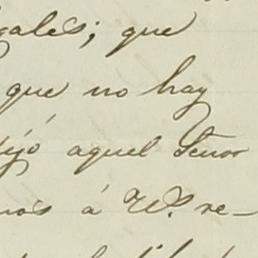 gales; que
que no hay
dejó aquel Señor
nos á W. re-